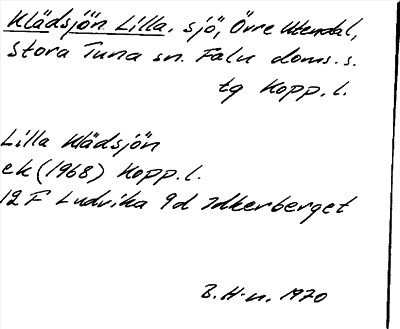 Klädsjön Lilla. sjö, Övre Utendal,
Stora Tuna sn. Falu doms.s.
tg Kopp.l.
Lilla Klädsjön
ek (1968) Kopp.l.
12F Ludvika 9d Idkerberget
B.H-n. 1970